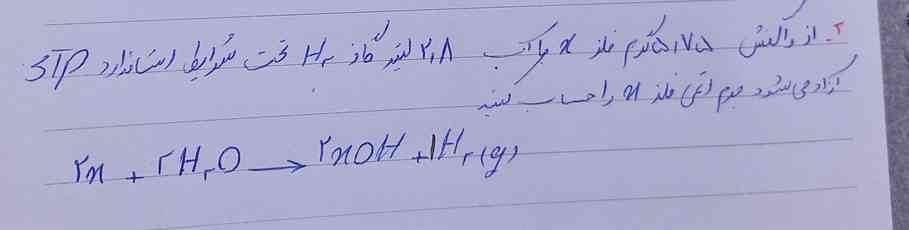 ۲- از واکنش ۵,۷۵ گرم فلز x با آب ۲,۸ لیتر گاز H₂ تحت شرایط استاندارد STP
آزاد می شود جرم اتمی فلز x را حساب کنید
۲x + ۲H₂O → ۲xOH + ۱H₂(g)